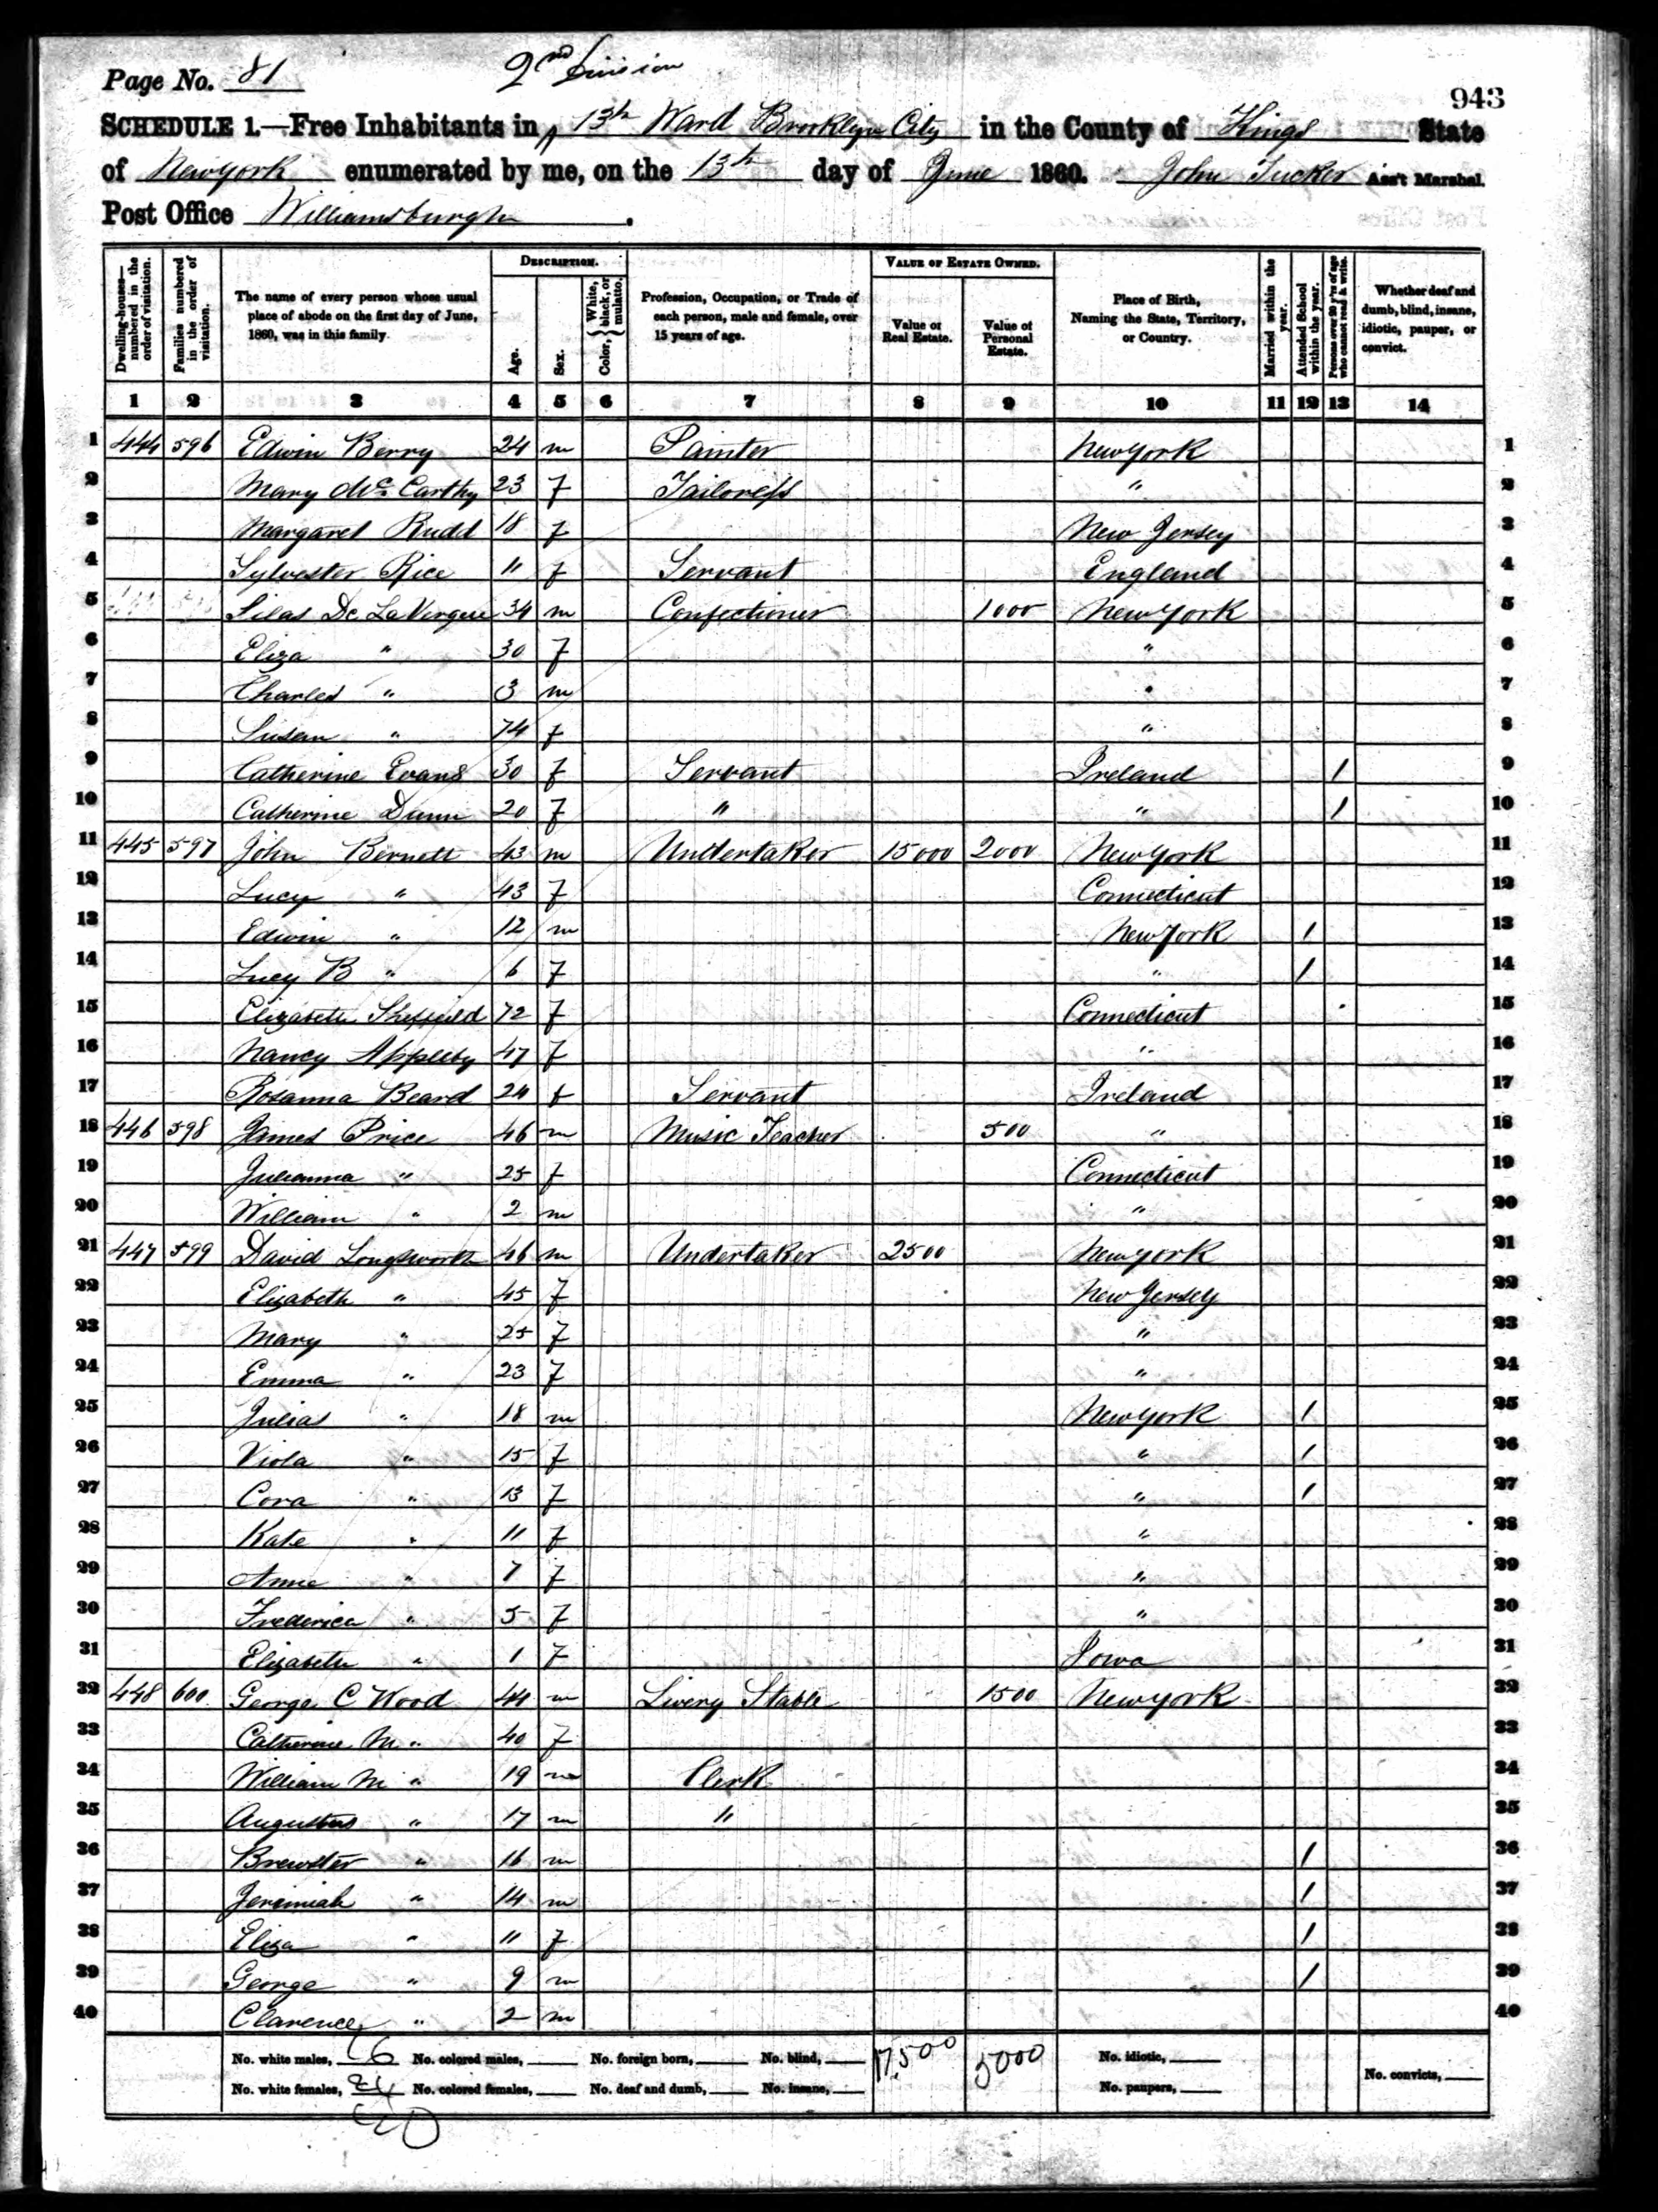 Page No. 81 2nd Division
943
SCHEDULE 1.—Free Inhabitants in 13th Ward Brooklyn City in the County of Kings State
of New york enumerated by me, on the 13th day of June 1860. John Tucker Ass't Marshal.
Post Office Williamsburgh.
Dwelling-houses—numbered in the order of visitation. Families numbered in the order of visitation. The name of every person whose usual place of abode on the first day of June, 1860, was in this family. DESCRIPTION. Age. Sex. Color, { White, black, or mulatto. Profession, Occupation, or Trade of each person, male and female, over 15 years of age. VALUE OF ESTATE OWNED. Value of Real Estate. Value of Personal Estate. Place of Birth, Naming the State, Territory, or Country. Married within the year. Attended School within the year. Persons over 20 y'rs of age who cannot read & write. Whether deaf and dumb, blind, insane, idiotic, pauper, or convict.
1 2 3 4 5 6 7 8 9 10 11 12 13 14
1 444 596 Edwin Berry 24 m Painter New york 1
2 Mary McCarthy 23 f Tailoress " 2
3 Margaret Rudd 18 f New Jersey 3
4 Sylvester Rice 11 f Servant England 4
5 Silas De LaVergne 34 m Confectioner 1000 New york 5
6 Eliza " 30 f " 6
7 Charles " 3 m " 7
8 Susan " 74 f " 8
9 Catherine Evans 30 f Servant Ireland / 9
10 Catherine Dunn 20 f " " / 10
11 445 597 John Bennett 43 m Undertaker 15000 2000 New york 11
12 Lucy " 43 f Connecticut 12
13 Edwin " 12 m New York / 13
14 Lucy B " 6 f " / 14
15 Elizabeth Sheffield 72 f Connecticut 15
16 Nancy Appleby 47 f " 16
17 Rosanna Beard 24 f Servant Ireland 17
18 446 598 James Price 46 m Music Teacher 500 " 18
19 Julianna " 25 f Connecticut 19
20 William " 2 m " 20
21 447 599 David Longsworth 46 m Undertaker 2500 New york 21
22 Elizabeth " 45 f New Jersey 22
23 Mary " 25 f " 23
24 Emma " 23 f " 24
25 Julias " 18 m New york / 25
26 Viola " 15 f " / 26
27 Cora " 13 f " / 27
28 Kate " 11 f " 28
29 Anna " 7 f " 29
30 Frederica " 5 f " 30
31 Elizabeth " 1 f Iowa 31
32 448 600 George C Wood 44 m Livery Stable 1500 New york 32
33 Catherine M " 40 f 33
34 William M " 19 m Clerk 34
35 Augustus " 17 m " 35
36 Brewster " 16 m / 36
37 Jeremiah " 14 m / 37
38 Eliza " 11 f / 38
39 George " 9 m / 39
40 Clarence " 2 m 40
No. white males, 16 No. colored males, No. foreign born, No. blind, 17500 5000 No. idiotic,
No. white females, 24 No. colored females, No. deaf and dumb, No. insane, No. paupers, No. convicts,
40